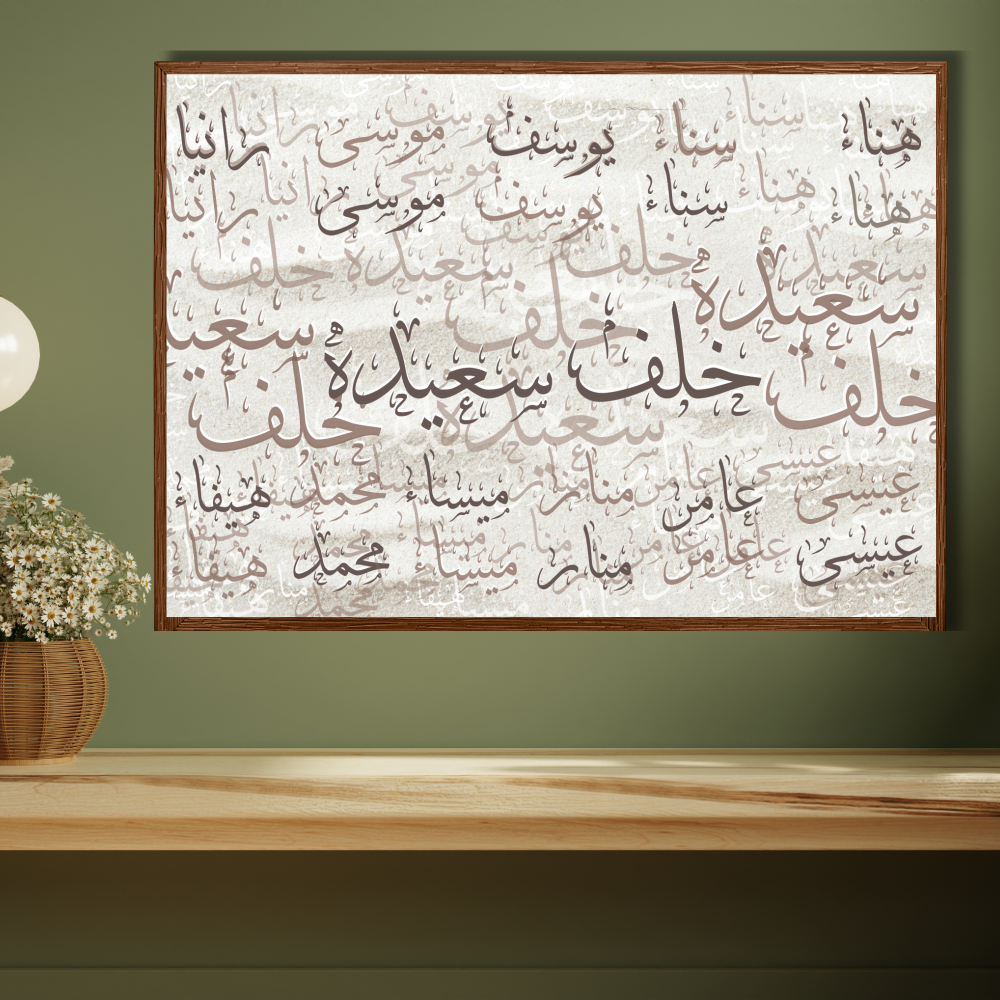 هناء سناء يوسف موسى رانيا
هناء سناء يوسف موسى رانيا
سعيده خلف سعيده خلف
سعيده خلف سعيده
خلف سعيده
خلف سعيده خلف
عيسى عامر منار ميساء محمد هيفاء
عيسى عامر منار ميساء محمد هيفاء